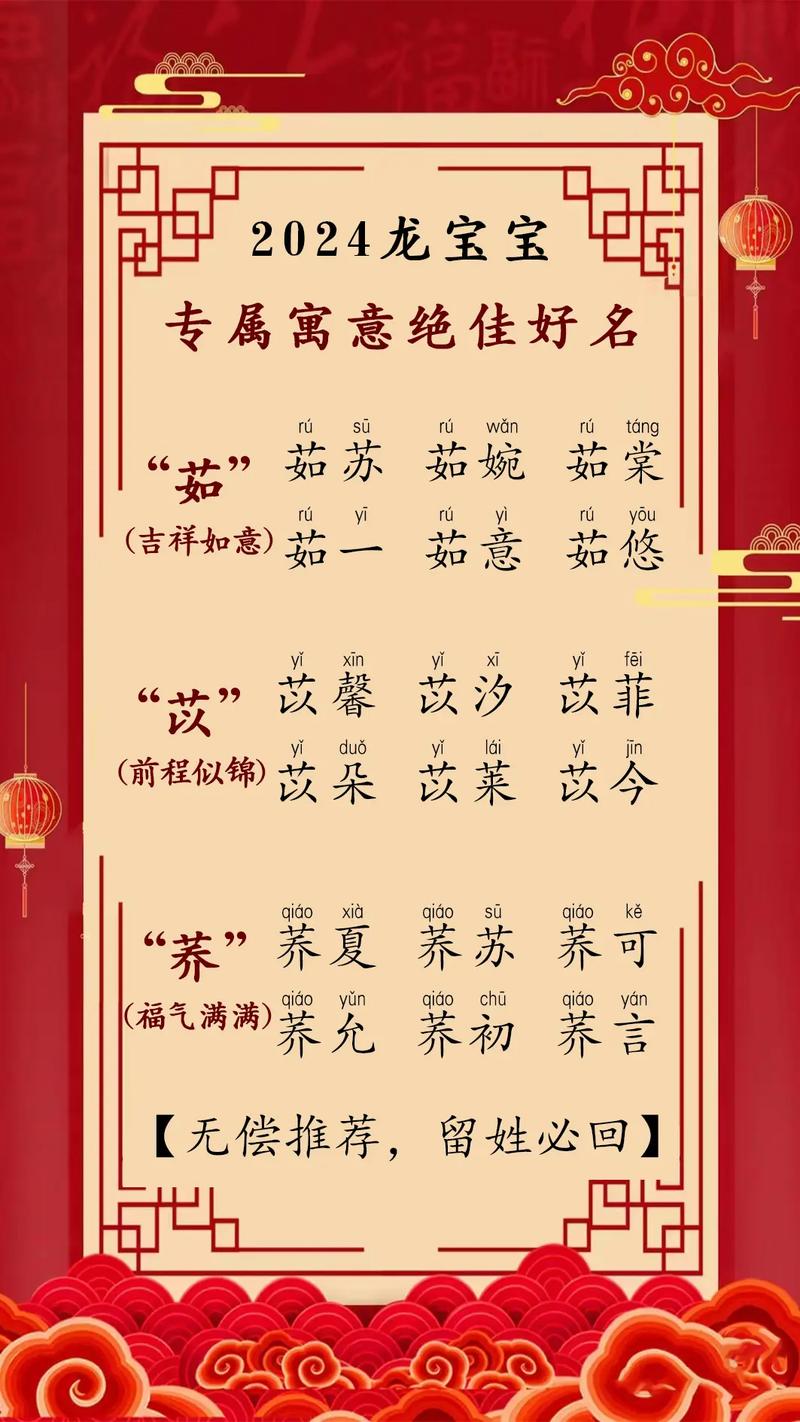 2024龙宝宝
专属寓意绝佳好名
rú sū rú wǎn rú táng
“茹” 茹苏 茹婉 茹棠
rú yī rú yì rú yōu
(吉祥如意) 茹一 茹意 茹悠
yǐ xīn yǐ xī yǐ fēi
“苡” 苡馨 苡汐 苡菲
yǐ duǒ yǐ lái yǐ jīn
(前程似锦) 苡朵 苡莱 苡今
qiáo xià qiáo sū qiáo kě
“荞” 荞夏 荞苏 荞可
qiáo yǔn qiáo chū qiáo yán
(福气满满) 荞允 荞初 荞言
【无偿推荐，留姓必回】